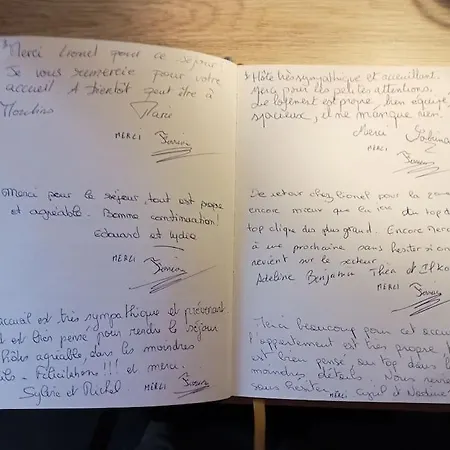 Merci Lionel pour ce séjour
Je vous remercie pour votre
accueil. A bientôt peut être à
Moulins
Marie
MERCI
Merci pour le séjour, tout est propre
et agréable. Bonne continuation!
Edouard et Lydie
MERCI
accueil est très sympathique et prévenant.
et bien pensé pour rendre le séjour
hôtes agréable, dans les moindres
ils. Félicitations!!! et merci.
Sylvie et Michel. MERCI
Hôte très sympathique et accueillant.
Merci pour les petites attentions.
Le logement est propre, bien équipé,
spacieux, il ne manque rien.
Merci Sabrina
MERCI
De retour chez Lionel pour la 2ème
encore mieux que du top
top clique des plus grand. Encore merci
à une prochaine sans hésiter si on
revient sur le secteur.
Adeline Benjamin Théa et
MERCI
Merci beaucoup pour cet accueil
l'appartement est très propre
est bien pensé au top dans les
moindres détails. Nous
sans hésiter. MERCI Cyril et